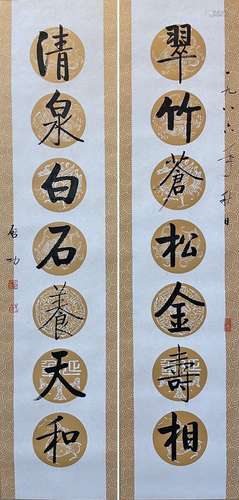 翠竹蒼松金壽相
一九八六年秋日
清泉白石養天和
启功